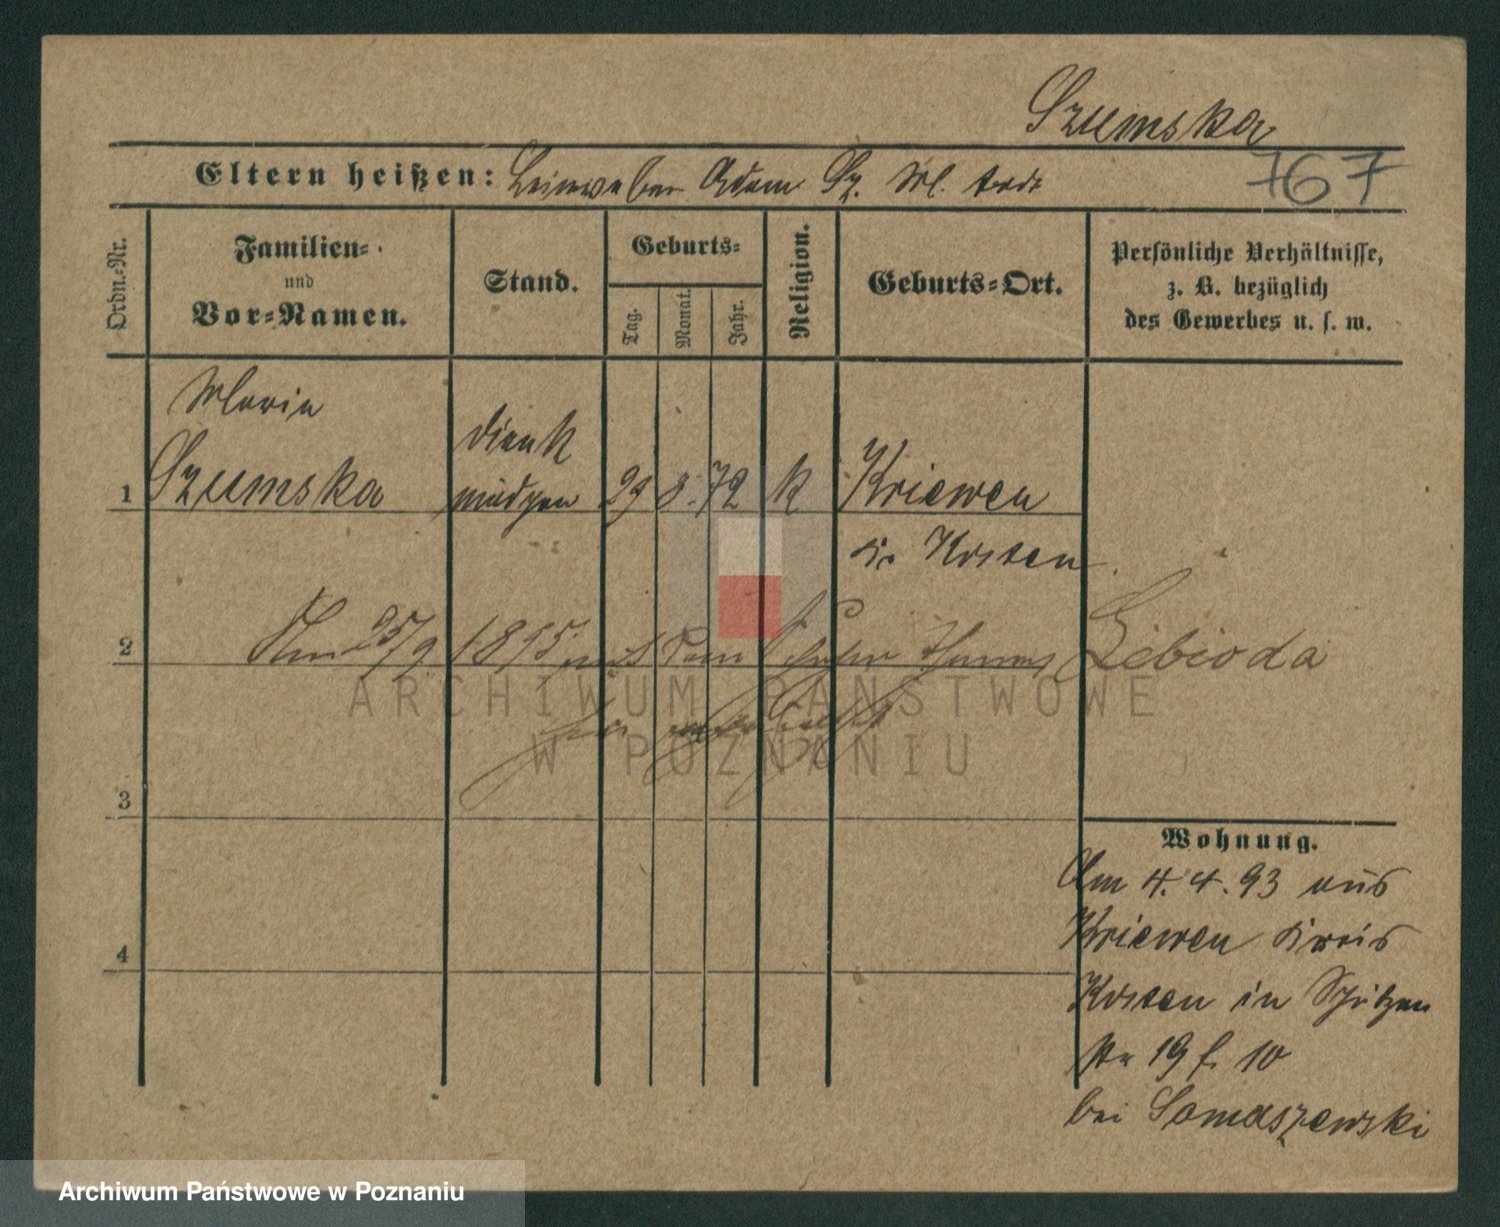 Szumska
767
Eltern heißen: Leinweber Adam Sz. M. todt
Ordn.=Nr.
Familien=
und
Vor=Namen.
Stand.
Geburts=
Tag.
Monat.
Jahr.
Religion.
Geburts=Ort.
Persönliche Verhältnisse,
z. B. bezüglich
des Gewerbes u. s. w.
Maria
1 Szumska
dienst
mädchen
29 8. 72 k Kriewen
Kr Kosten
2 Am 25/9 1895 mit dem Thomas Lebioda
3
4
ARCHIWUM PAŃSTWOWE
W POZNANIU
Wohnung.
Am 4.4.93 aus
Kriewen Kreis
Kosten in Schützen
str 19 f. 10
bei Tomaszewski
Archiwum Państwowe w Poznaniu